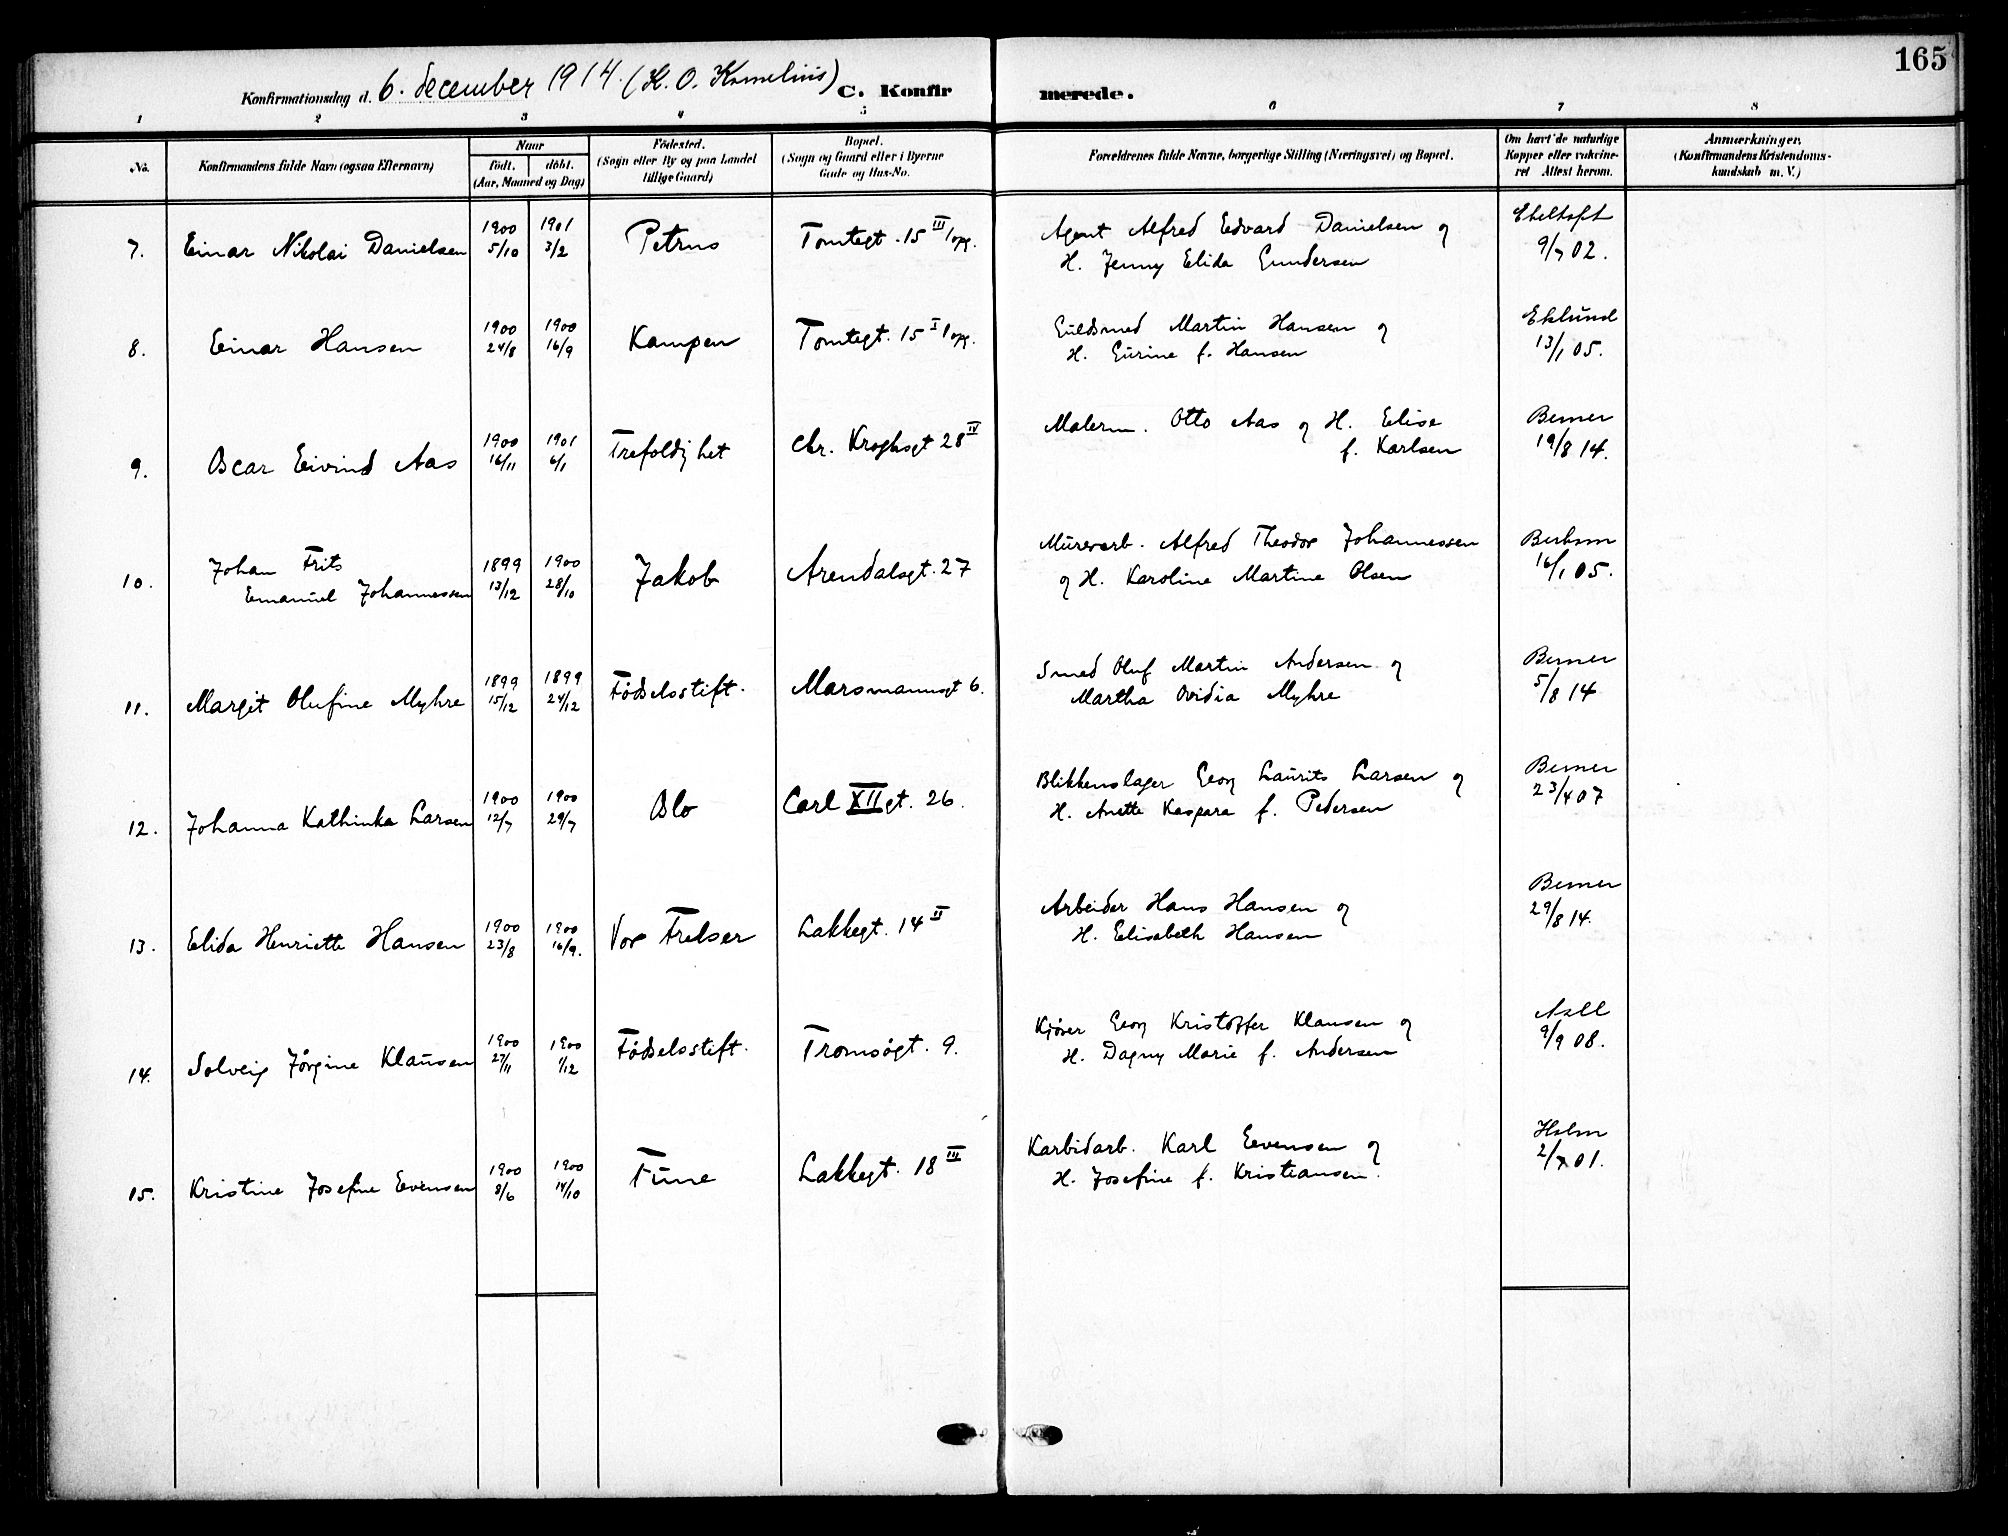 165
Konfirmationsdag d. 6. december 1914. (K. O. Kornelius) C. Konfirmerede.
1 2 3 4 5 6 7 8
No.
Konfirmandens fulde Navn (ogsaa Efternavn)
Naar
født. døbt.
(Aar, Maaned og Dag)
Fødested.
(Sogn eller By og paa Landet
tillige Gaard)
Bopæl.
(Sogn og Gaard eller i Byerne
Gade og Hus-No.
Forældrenes fulde Navne, borgerlige Stilling (Næringsvei) og Bopæl.
Om havt de naturlige
Kopper eller vakcine-
ret Attest herom.
Anmærkninger.
(Konfirmandens Kristendoms-
kundskab m. V.)
7. Einar Nikolai Danielsen 1900 5/10 1901 3/2 Petrus Tomtegt. 15 III opg.
Agent Alfred Edvard Danielsen og
H. Jenny Elida Gundersen
9/7 02.
8. Einar Hansen 1900 24/8 1900 16/9 Kampen Tomtegt. 15 I opg.
Guldsmed Martin Hansen og
H. Gurine f. Hansen
Eklund
13/1 05.
9. Oscar Eivind Aas 1900 16/11 1901 6/1 Trefoldighet Chr. Kroghsgt 28 IV
Malerm. Otto Aas og H. Elise
f. Karlsen
Berner
19/8 14.
10. Johan Frits
Emanuel Johannessen 1899 13/12 1900 28/10 Jakob Arendalsgt. 27
Murerarb. Alfred Theodor Johannessen
og H. Karoline Martine Olsen
16/1 05.
11. Margit Olufine Myhre 1899 15/12 1899 24/12 Fødselsstift. Marsmannsgt 6.
Smed Oluf Martin Andersen og
Martha Ovidia Myhre
Berner
5/8 14
12. Johanna Kathinka Larsen 1900 12/7 1900 29/7 Oslo Carl XII gt. 26.
Blikkenslager Georg Laurits Larsen og
H. Anette Kaspara f. Pedersen
Berner
23/4 07
13. Elida Henriette Hansen 1900 23/8 1900 16/9. Vor Frelser Lakkegt. 14 II
Arbeider Hans Hansen og
H. Elisabeth Hansen
Berner
29/8 14.
14. Solveig Jørgine Klausen 1900 27/11 1900 1/12 Fødselsstift. Tromsøgt. 9.
Kjører Georg Kristoffer Klausen og
H. Dagny Marie f. Andersen
9/9 08.
15. Kristine Josefine Evensen 1900 8/6 1900 14/10 Tune Lakkegt. 18 III
Karbidarb. Karl Evensen og
H. Josefine f. Kristiansen.
Holm
2/7 01.